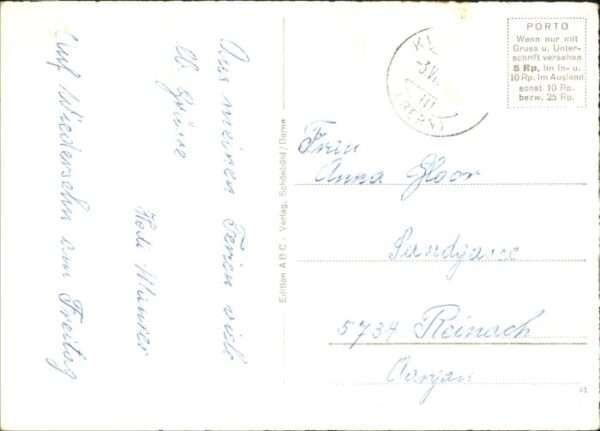 Aus meinen Ferien viele
lb. Grüsse
Hedi Maurer
Auf Wiedersehn am Freitag
Edition A B C, Verlag, Schönbühl / Berne
PORTO
Wenn nur mit
Gruss u. Unter-
schrift versehen
5 Rp. im In- u.
10 Rp. im Ausland
sonst 10 Rp.
bezw. 25 Rp.
(BERN)
Frau
Anna Gloor
Sandgasse
5734 Reinach
Aargau